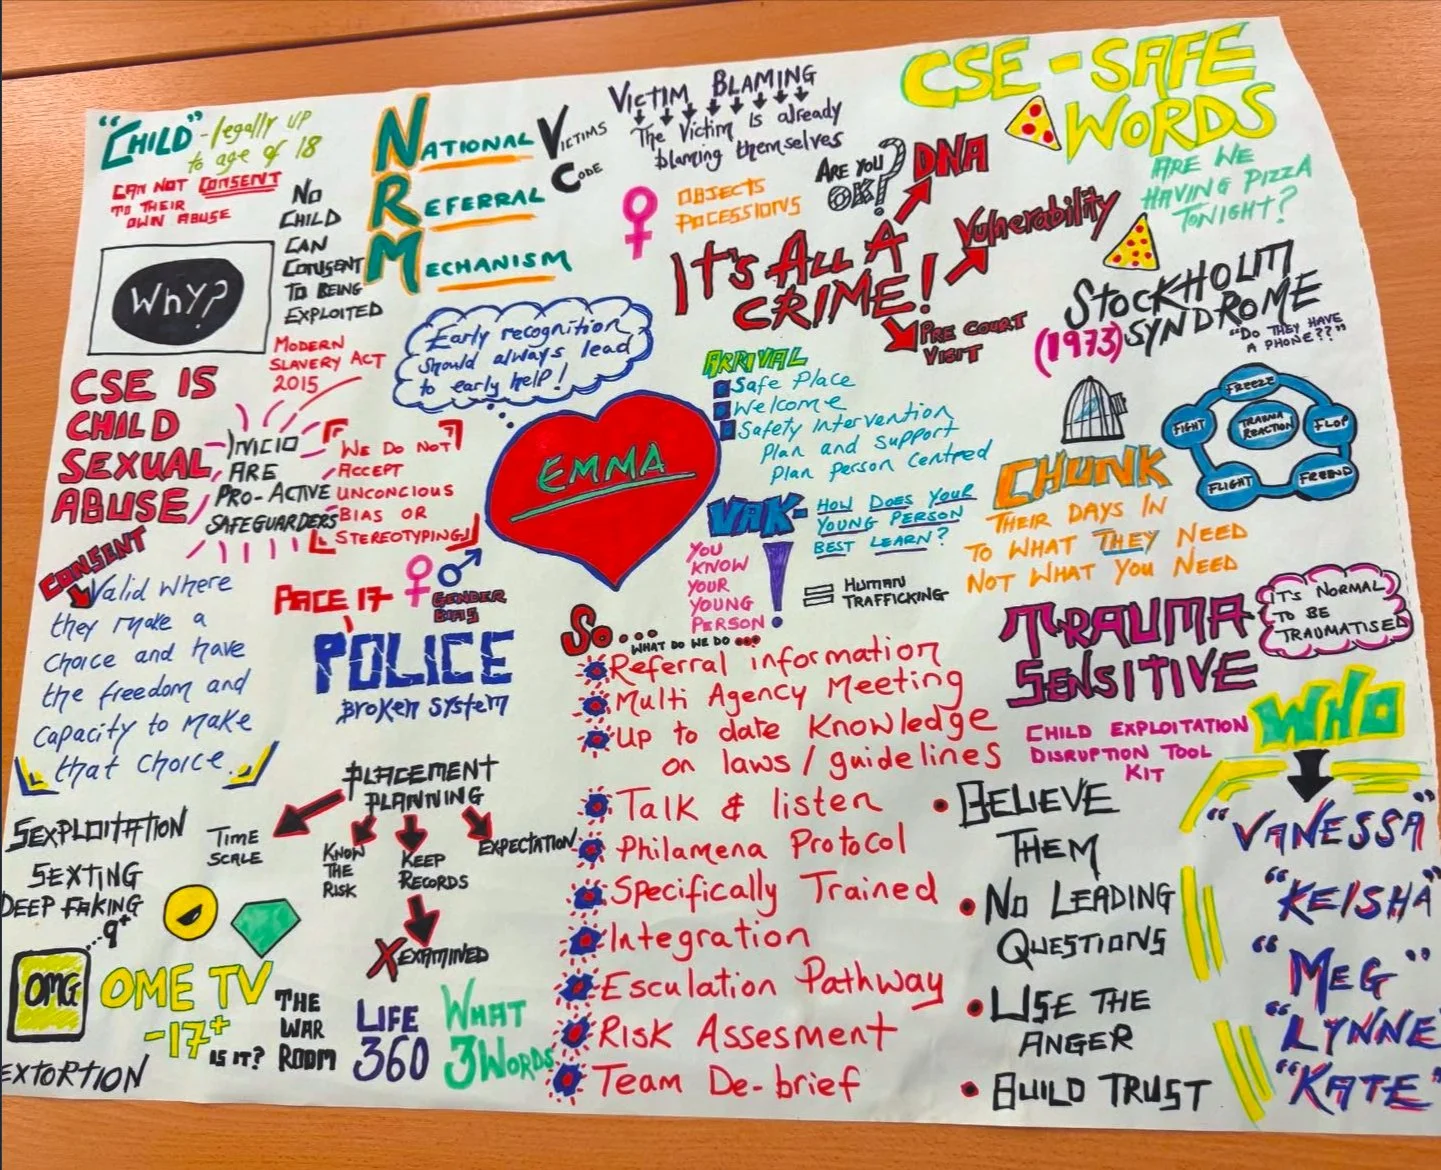 "CHILD" - legally up
to age of 18
CAN NOT CONSENT
TO THEIR
OWN ABUSE
NO
CHILD
CAN
CONSENT
TO BEING
EXPLOITED
WHY?
NATIONAL
REFERRAL
MECHANISM
VICTIMS
CODE
VICTIM BLAMING
The Victim is already
blaming themselves
OBJECTS
POCESSIONS
ARE YOU
OK?
DNA
IT'S ALL A
CRIME!
Vulnerability
PRE COURT
VISIT
CSE - SAFE
WORDS
ARE WE
HAVING PIZZA
TONIGHT?
STOCKHOLM
SYNDROME
(1973)
"DO THEY HAVE
A PHONE??"
MODERN
SLAVERY ACT
2015
Early recognition
should always lead
to early help!
CSE IS
CHILD
SEXUAL
ABUSE
INICIO
ARE
PRO-ACTIVE
SAFEGUARDERS
WE DO NOT
ACCEPT
UNCONCIOUS
BIAS OR
STEREOTYPING
EMMA
ARRIVAL
Safe Place
Welcome
Safety Intervention
Plan and support
Plan person centred
VAK-
HOW DOES YOUR
YOUNG PERSON
BEST LEARN?
YOU
KNOW
YOUR
YOUNG
PERSON!
= HUMAN
TRAFFICKING
CHUNK
THEIR DAYS IN
TO WHAT THEY NEED
NOT WHAT YOU NEED
FREEZE
FIGHT
TRAUMA
REACTION
FLOP
FLIGHT
FREEND
CONSENT
Valid where
they make a
choice and have
the freedom and
capacity to make
that choice.
PACE 17
GENDER
BIAS
POLICE
Broken system
TRAUMA
SENSITIVE
IT'S NORMAL
TO BE
TRAUMATISED
CHILD EXPLOITATION
DISRUPTION TOOL
KIT
SO...
WHAT DO WE DO...
Referral information
Multi Agency Meeting
Up to date Knowledge
on laws / guidelines
Talk & listen
Philamena Protocol
Specifically Trained
Integration
Esculation Pathway
Risk Assesment
Team De-brief
BELIEVE
THEM
NO LEADING
QUESTIONS
USE THE
ANGER
BUILD TRUST
WHO
"VANESSA"
"KEISHA"
"MEG"
"LYNNE
"KATE"
PLACEMENT
PLANNING
TIME
SCALE
KNOW
THE
RISK
KEEP
RECORDS
EXPECTATION
X EXAMINED
SEXPLOITATION
SEXTING
DEEP FAKING
9+
OMG
OME TV
-17+
IS IT?
EXTORTION
THE
WAR
ROOM
LIFE
360
WHAT
3WORDS